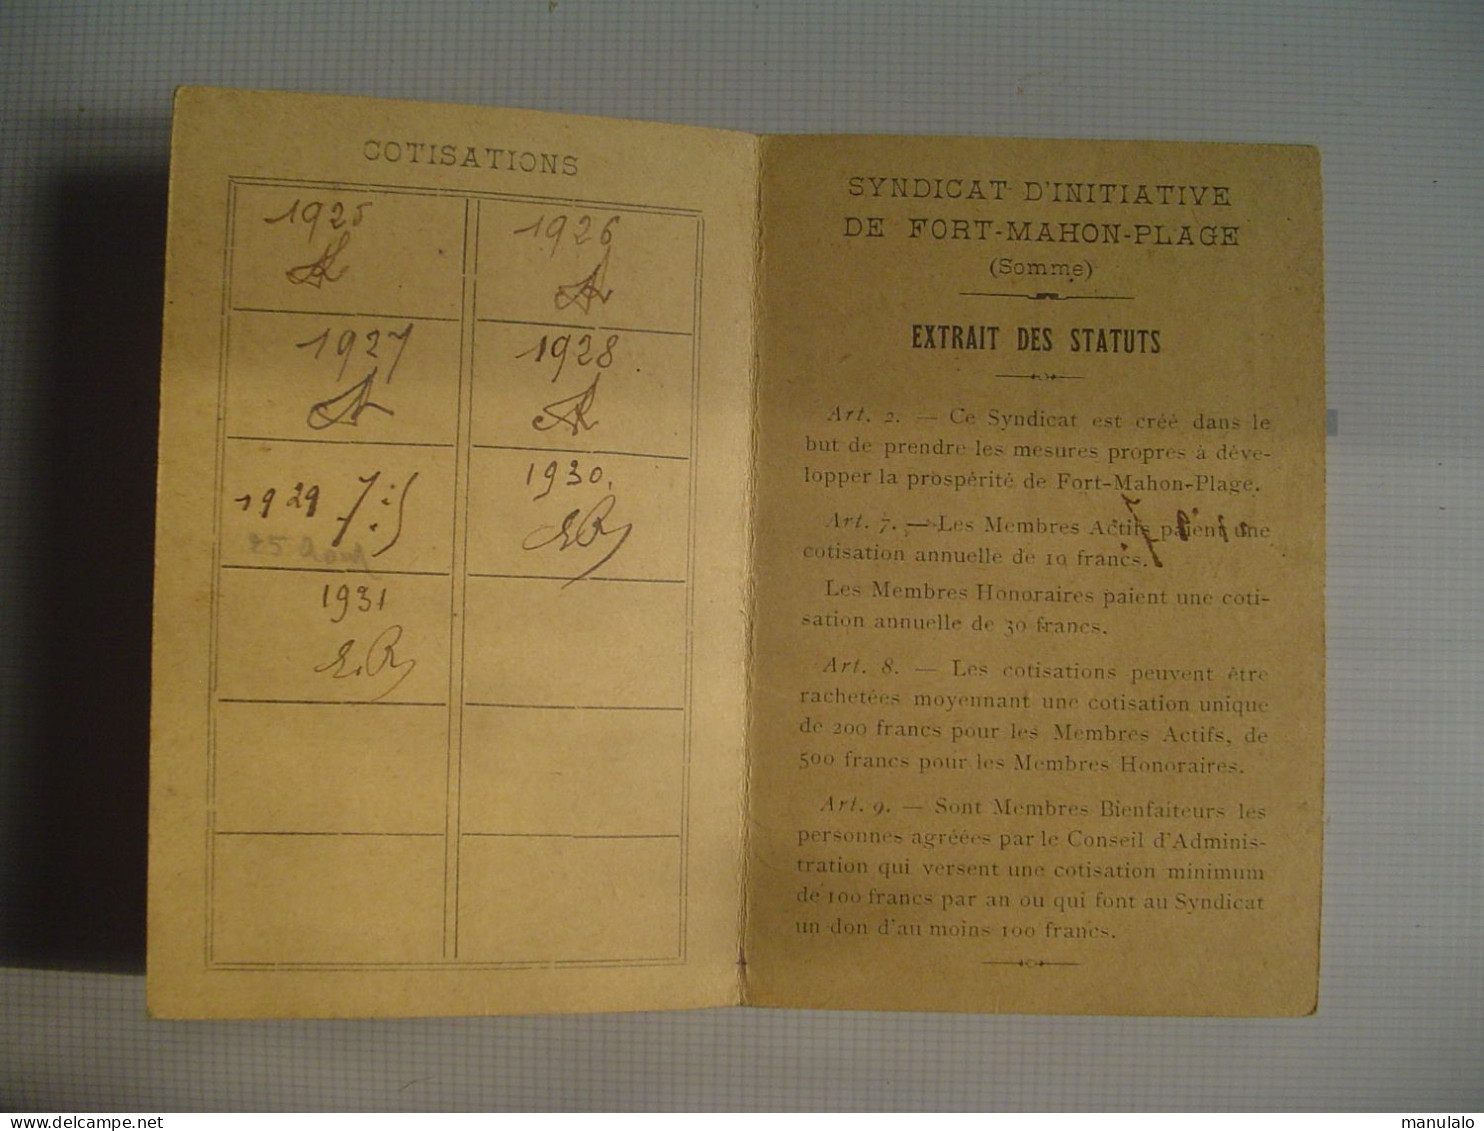 COTISATIONS
1925
1926
1927
1928
1929
1930.
1931
E.R
SYNDICAT D'INITIATIVE
DE FORT-MAHON-PLAGE
(Somme)
EXTRAIT DES STATUTS
Art. 2. — Ce Syndicat est créé dans le
but de prendre les mesures propres à déve-
lopper la prospérité de Fort-Mahon-Plage.
Art. 7. — Les Membres Actifs paient une
cotisation annuelle de 10 francs.
Les Membres Honoraires paient une coti-
sation annuelle de 30 francs.
Art. 8. — Les cotisations peuvent être
rachetées moyennant une cotisation unique
de 200 francs pour les Membres Actifs, de
500 francs pour les Membres Honoraires.
Art. 9. — Sont Membres Bienfaiteurs les
personnes agréées par le Conseil d'Adminis-
tration qui versent une cotisation minimum
de 100 francs par an ou qui font au Syndicat
un don d'au moins 100 francs.
www.delcampe.net
manulalo